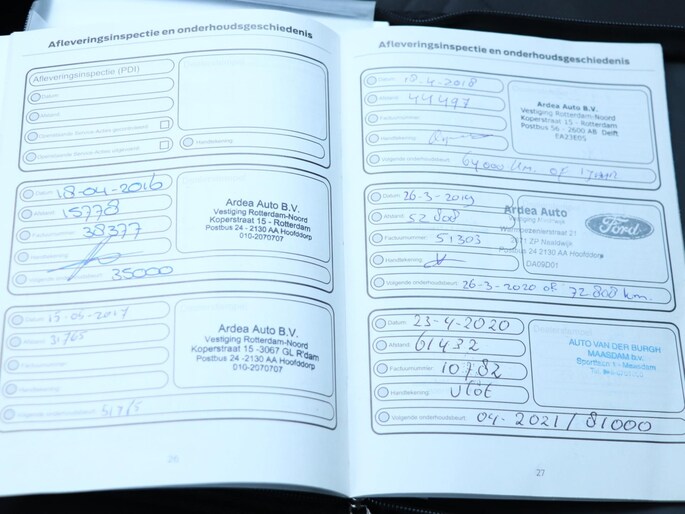 Afleveringsinspectie en onderhoudsgeschiedenis
Afleveringsinspectie (PDI)
Datum
Afstand
Handtekening
Datum 18-04-2016
Afstand 15778
Factuurnummer 38377
Handtekening
Volgende onderhoudsbeurt 35000
Ardea Auto B.V.
Vestiging Rotterdam-Noord
Koperstraat 15 - Rotterdam
Postbus 24 - 2130 AA Hoofddorp
010-2070707
Datum 15-05-2017
Afstand 31765
Factuurnummer
Handtekening
Volgende onderhoudsbeurt 51765
Ardea Auto B.V.
Vestiging Rotterdam-Noord
Koperstraat 15 -3067 GL R'dam
Postbus 24 -2130 AA Hoofddorp
010-2070707
26
Afleveringsinspectie en onderhoudsgeschiedenis
Datum 10-4-2018
Afstand 44497
Factuurnummer
Handtekening
Volgende onderhoudsbeurt 64000 km. of 1 jaar
Ardea Auto B.V.
Vestiging Rotterdam-Noord
Koperstraat 15 - Rotterdam
Postbus 56 - 2600 AB Delft
EA23E05
Datum 26-3-2019
Afstand 52808
Factuurnummer 51303
Handtekening
Volgende onderhoudsbeurt 26-3-2020 of 72800 km.
Ardea Auto
Vestiging Noordwijk
2171 ZP Noordwijk
Postbus 24 2130 AA Hoofddorp
DA09D01
Ford
Datum 23-4-2020
Afstand 61432
Factuurnummer 10782
Handtekening Vlot
Volgende onderhoudsbeurt 04-2021/81000
AUTO VAN DER BURGH
MAASDAM b.v.
Sportlaan 1 - Maasdam
27